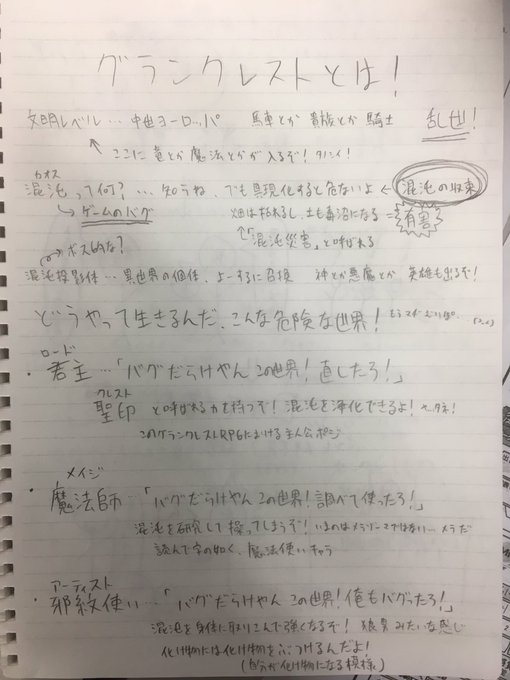 グランクレストとは!
文明レベル… 中世ヨーロッパ 馬車とか 貴族とか 騎士 乱世!
ここに竜とか魔法とかが入るぞ! タノシイ!
カオス
混沌って何?… 知らね、でも具現化すると危ないよ ← 混沌の収束
→ ゲームのバグ 畑は枯れるし、土も毒沼になる = 有害
「混沌災害」と呼ばれる
ボス的な?
混沌投影体… 異世界の個体、よーするに召喚 神とか悪魔とか 英雄も出るぞ!
どうやって生きるんだ、こんな危険な世界!
ロード
・君主…「バグだらけやん この世界! 直したろ!」
クレスト
聖印 と呼ばれる力を持つぞ! 混沌を浄化できるよ! ヤッタネ!
このグランクレストRPGにおける主人公ポジ
メイジ
・魔法師…「バグだらけやん この世界! 調べて使ったろ!」
混沌を研究して操ってしまうぞ! いまのはメラゾーマではない… メラだ
読んで字の如く、魔法使いキャラ
アーティスト
・邪紋使い…「バグだらけやん この世界! 俺もバグったろ!」
混沌を身体に取りこんで強くなるぞ! 狼男みたいな感じ
化け物には化け物をぶつけるんだよ!
(自分が化け物になる模様)